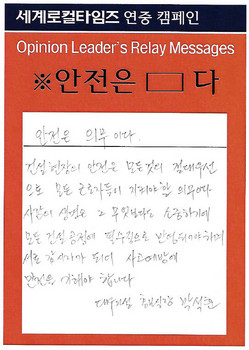 세계로컬타임즈 연중 캠페인
Opinion Leader's Relay Messages
※안전은 ▭ 다
안전은 의무 이다.
건설현장의 안전은 모든것의 절대우선
으로 모든 근로자들이 지켜야할 의무이다
사람의 생명은 그 무엇보다도 소중하기에
모든 건설 공정에 필수적으로 반영되어야하며
서로 감시자가 되어 사고예방에
만전을 기해야 합니다